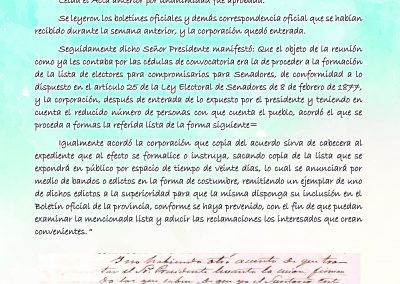 Leída el Acta anterior por unanimidad fue aprobada.
Se leyeron los boletines oficiales y demás correspondencia oficial que se habían
recibido durante la semana anterior, y la corporación quedó enterada.
Seguidamente dicho Señor Presidente manifestó: Que el objeto de la reunión
como ya les contaba por las cédulas de convocatoria era la de proceder a la formación
de la lista de electores para compromisarios para Senadores, de conformidad a lo
dispuesto en el artículo 25 de la Ley Electoral de Senadores de 8 de febrero de 1877,
y la corporación, después de enterada de lo expuesto por el presidente y teniendo en
cuenta el reducido número de personas con que cuenta el pueblo, acordó el que se
proceda a formas la referida lista de la forma siguiente=
Igualmente acordó la corporación que copia del acuerdo sirva de cabecera al
expediente que al efecto se formalice o instruya, sacando copia de la lista que se
expondrá en público por espacio de tiempo de veinte días, lo cual se anunciará por
medio de bandos o edictos en la forma de costumbre, remitiendo un ejemplar de uno
de dichos edictos a la superioridad para que la misma disponga su inclusión en el
Boletín oficial de la provincia, conforme se haya prevenido, con el fin de que puedan
examinar la mencionada lista y aducir las reclamaciones los interesados que crean
convenientes. "
Y no habiendo otro asunto de que tra-
tar el Sr. Presidente levantó la sesión firman
do los que saben, de que yo el Secretario certi